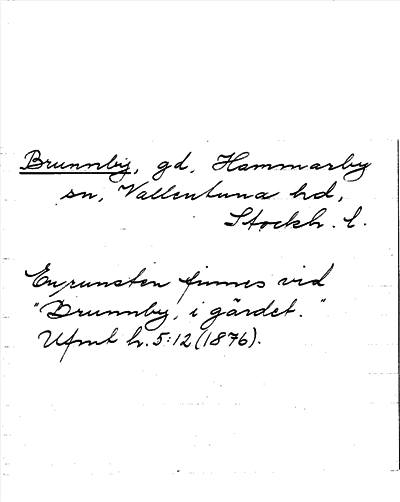 Brunnby, gd, Hammarby
sn, Vallentuna hd,
Stockh. l.
En runsten finnes vid
"Brunnby, i gärdet."
Ufmt h. 5:12 (1876).